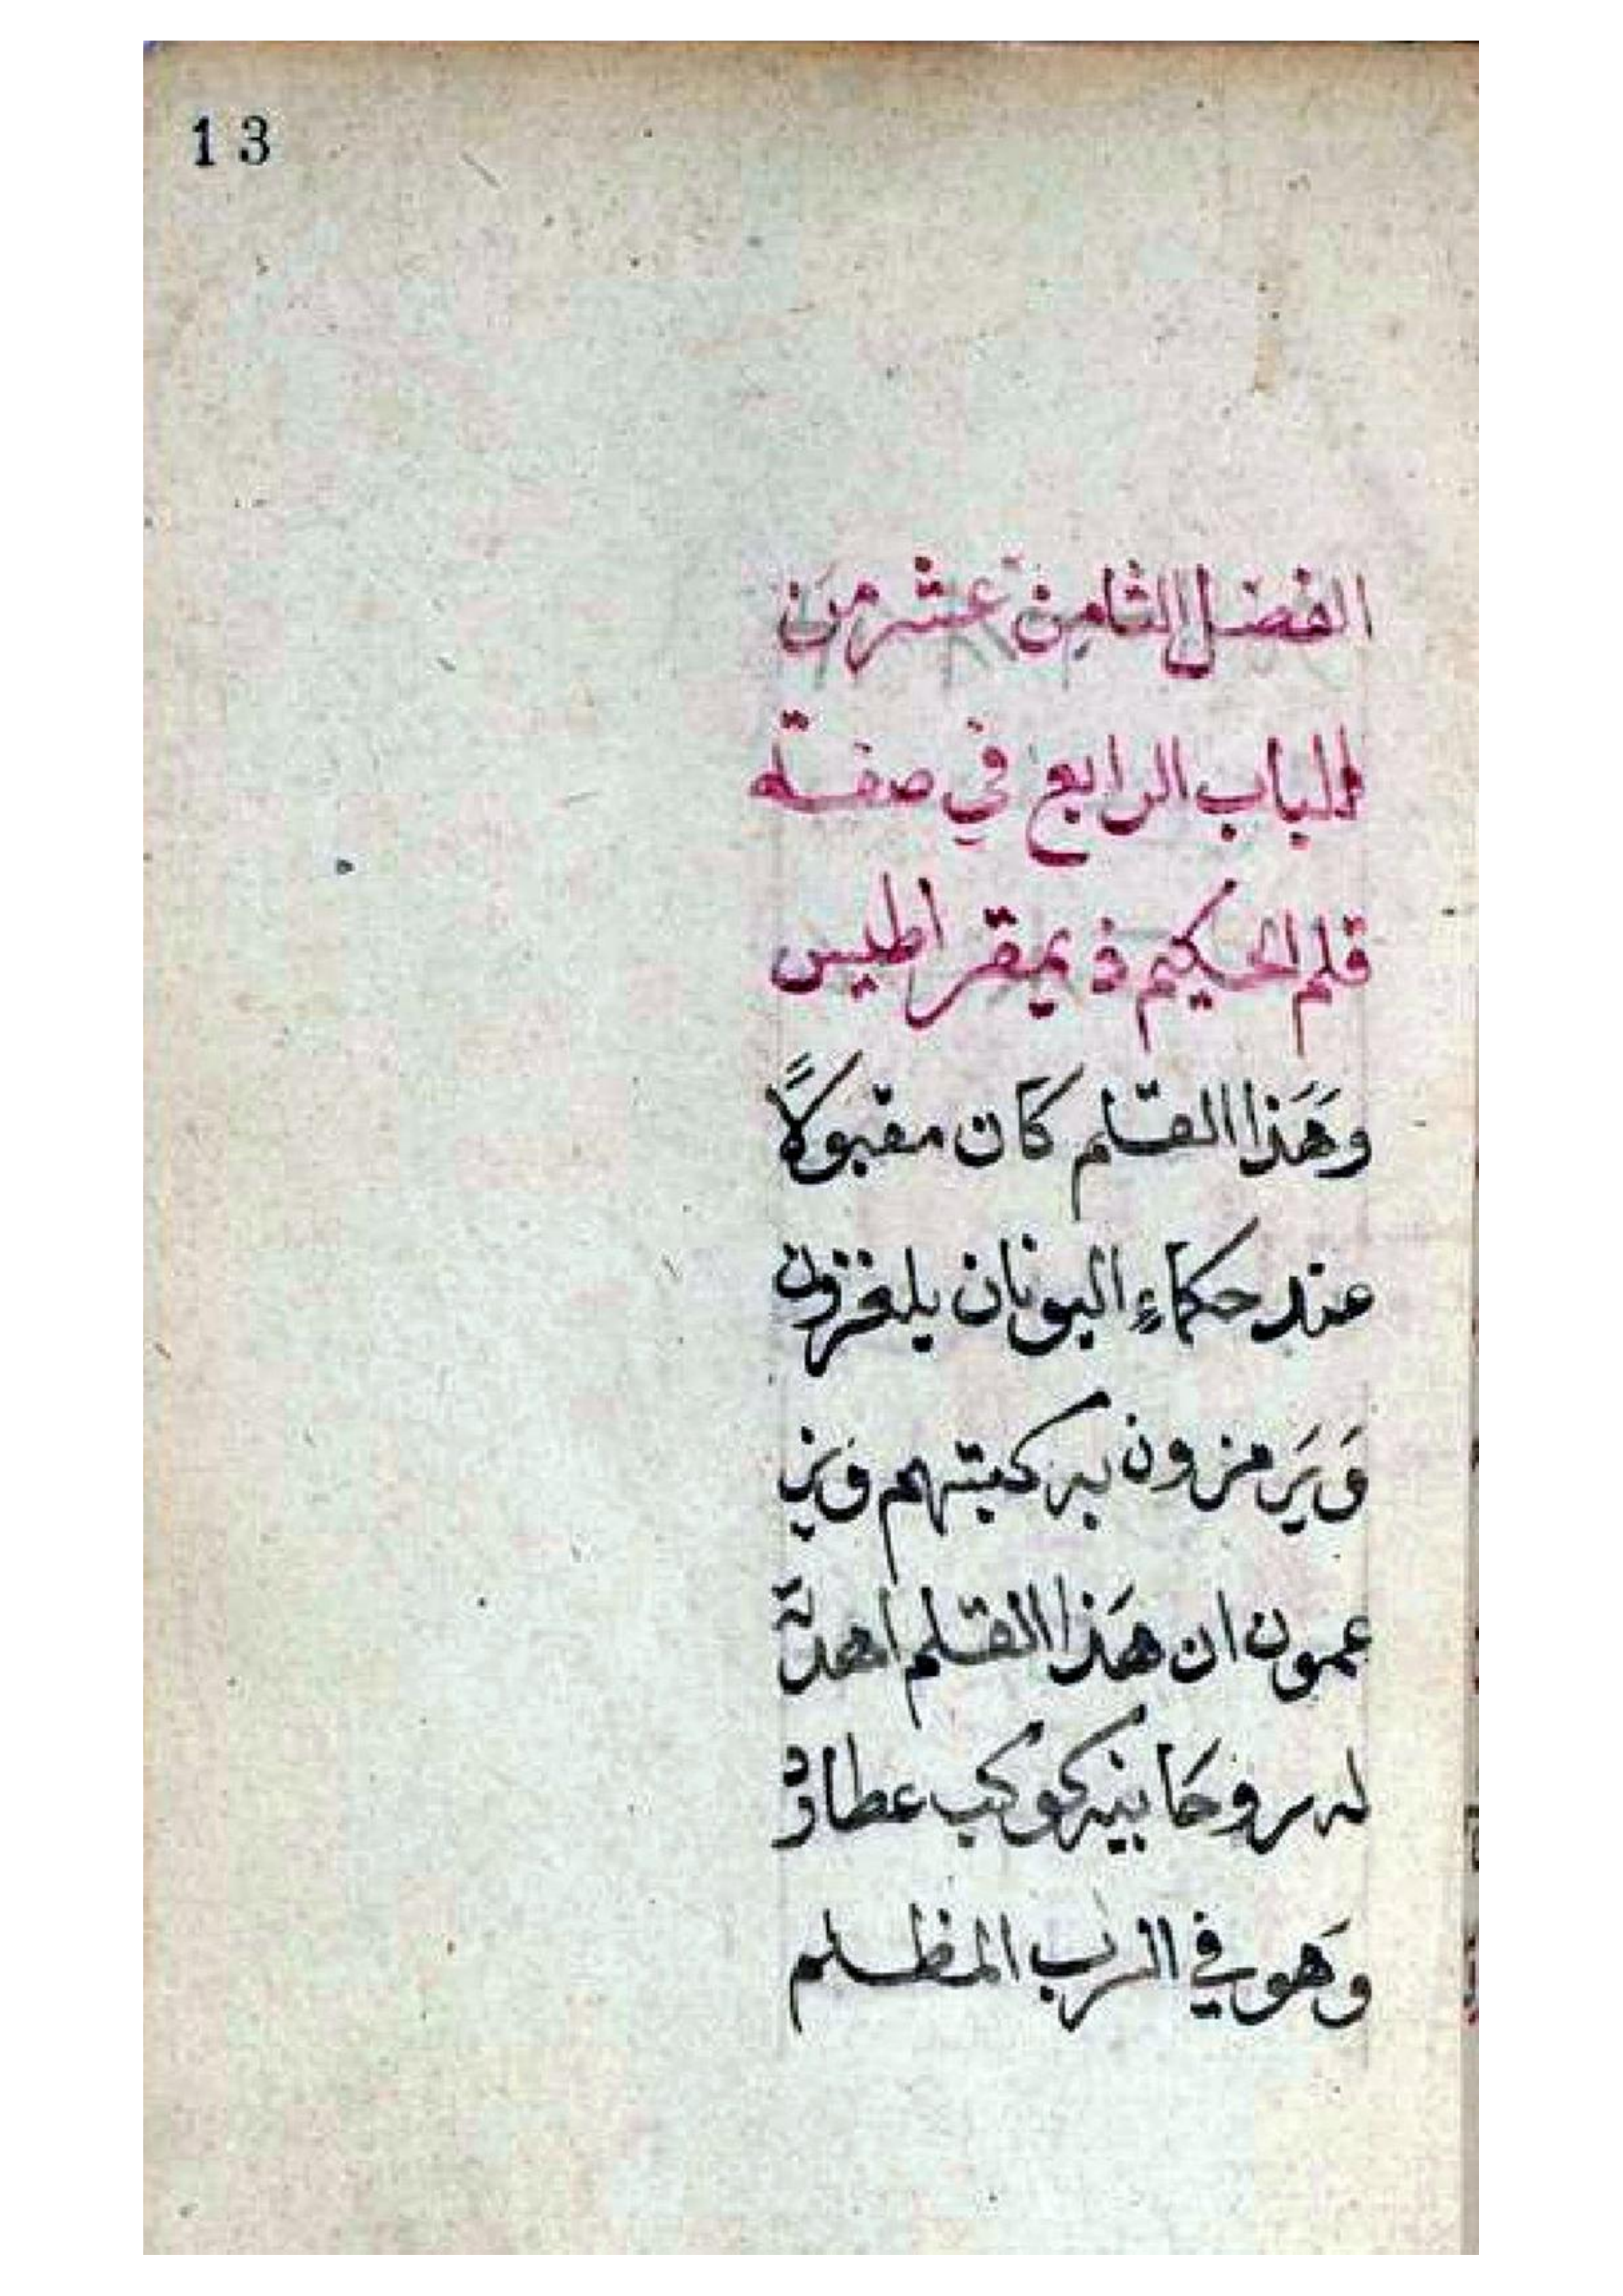 13
الفضل الثامن عشر من
الباب الرابع في صفة
قلم الحكيم ذيمقراطيس
وَهَذا القلم كَان مقبوَلاً
عند حكماءِ اليونان يلغزون
وَيَرمزون به كتبتهم وَيز
عمون ان هَذا القلم اهدتَ
له روحَانيه كوكب عطارد
وَهو في السرب المظلم